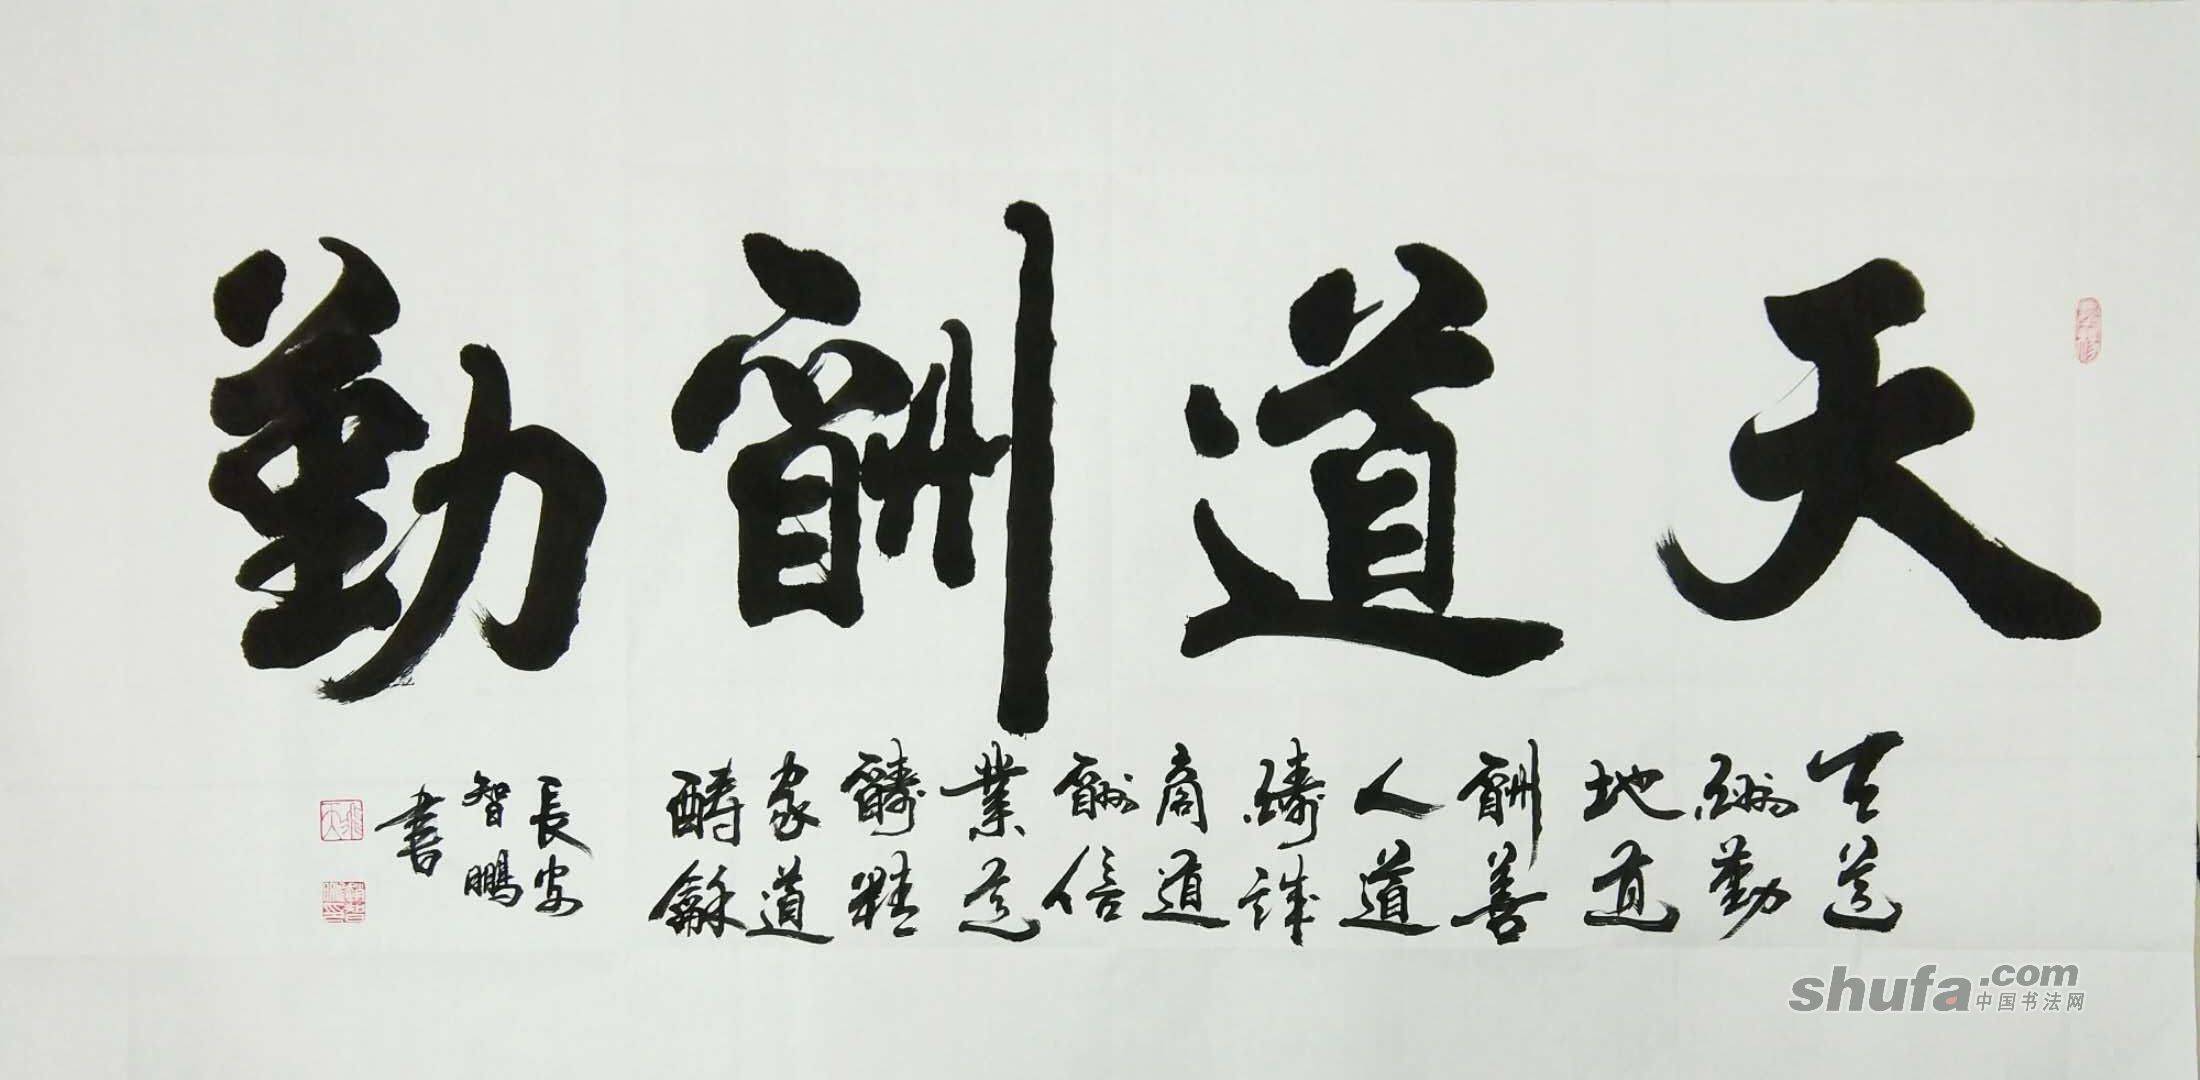 天道酬勤
天道
酬勤
地道
酬善
人道
酬誠
商道
酬信
業道
酬精
家道
酬龢
長安
智鵬
書
shufa.com
中国书法网